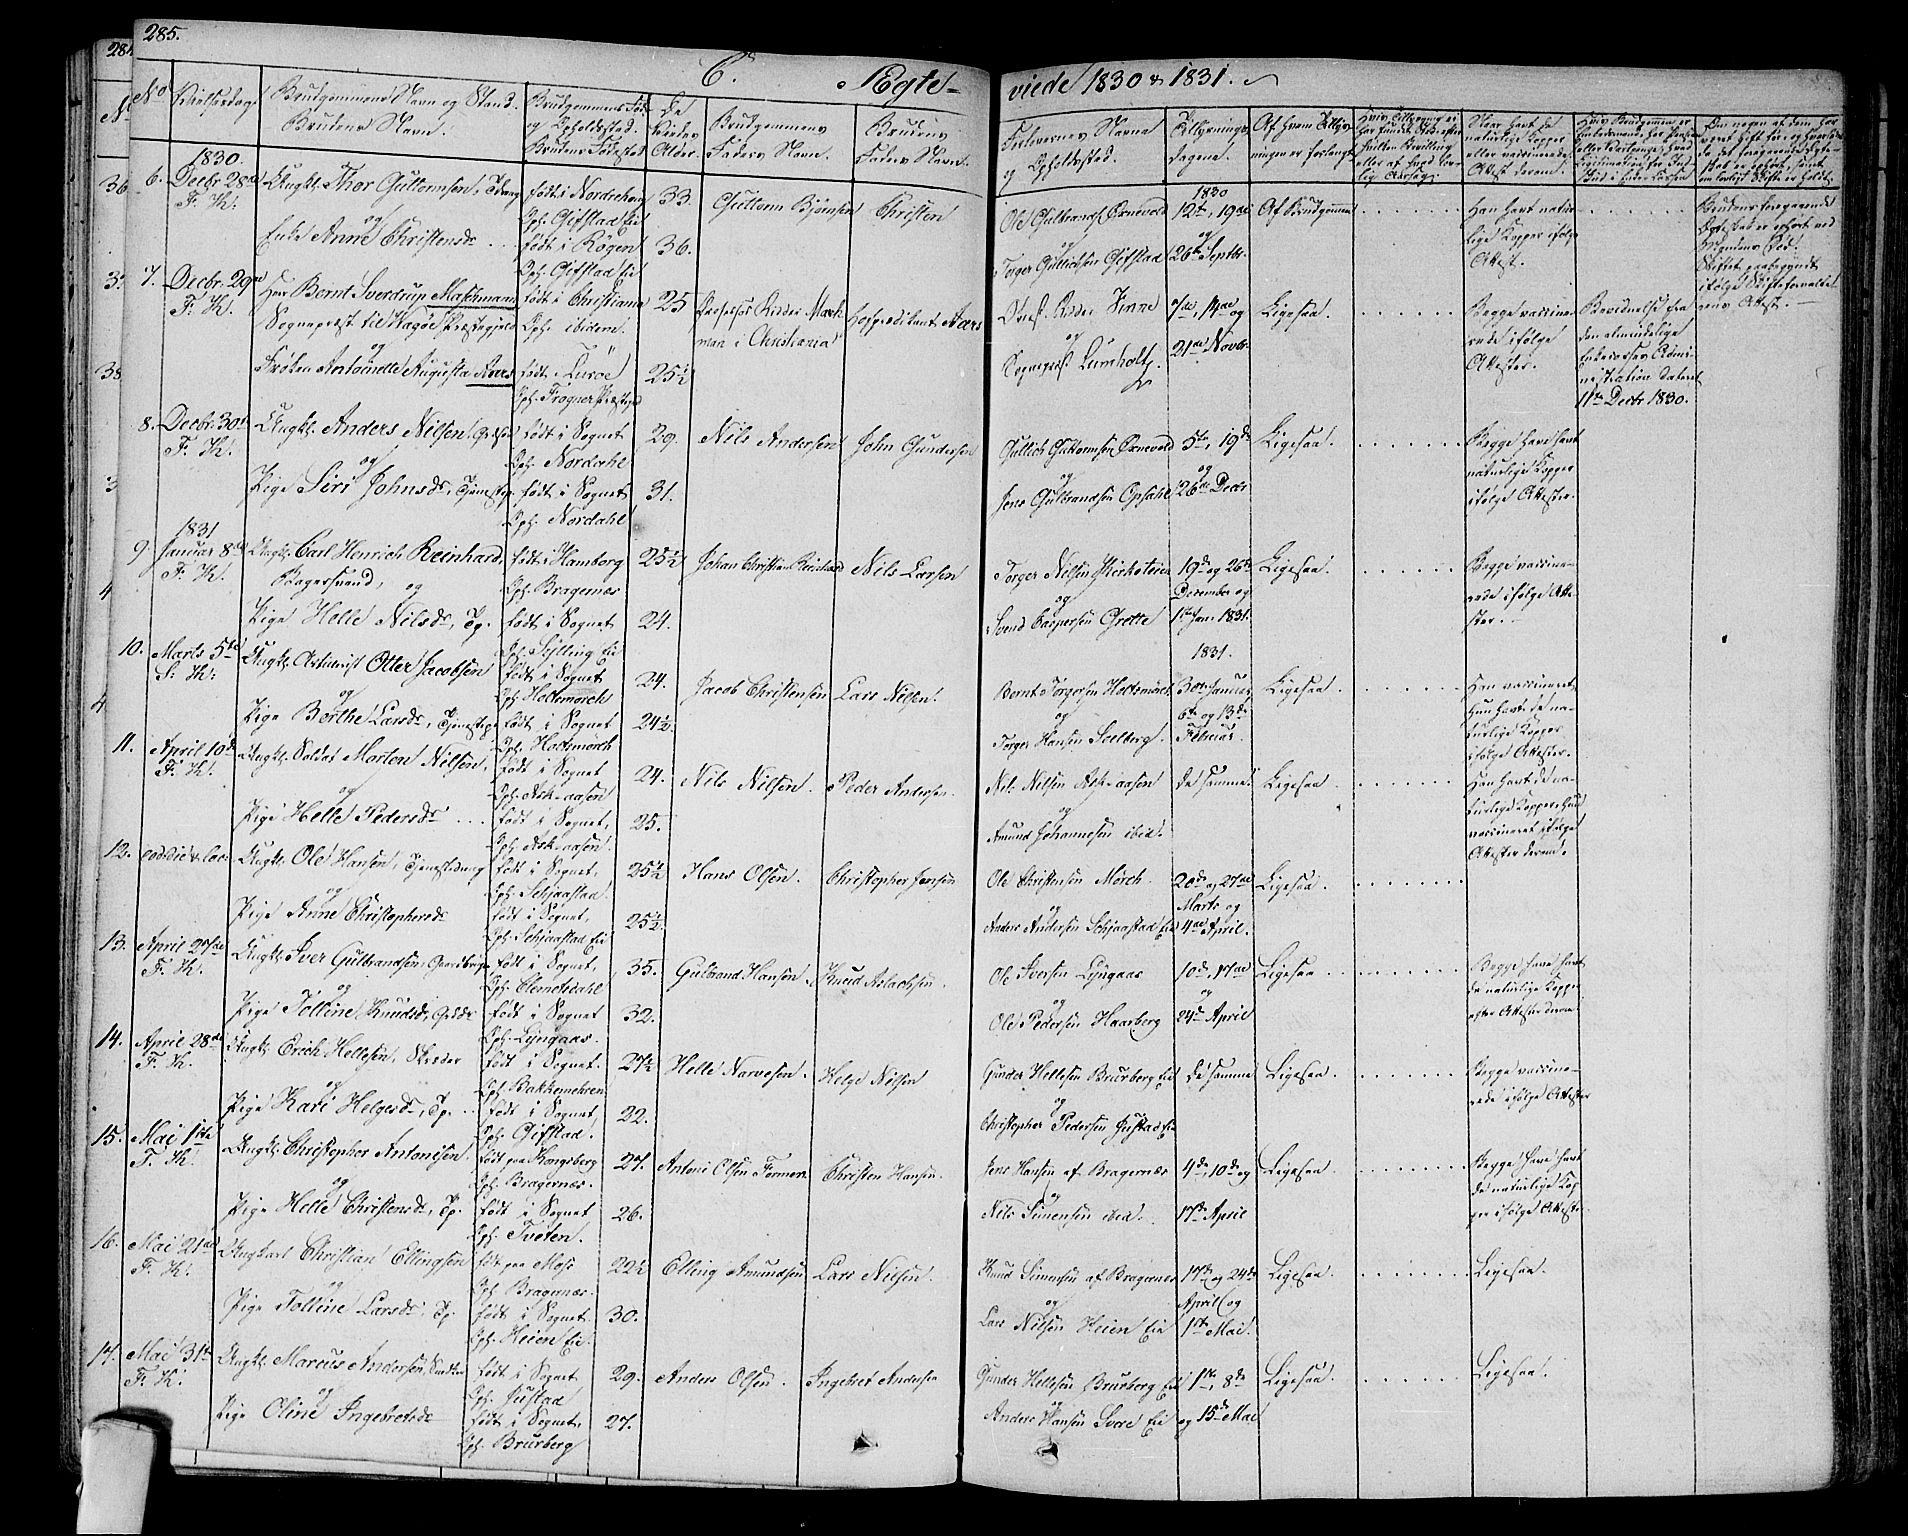 285.
C. Ægte-
viede 1830 & 1831.
No
Vielsesdag
Brudgommens Navn og Stand.
Brudens Navn.
Brudgommens Føde-
og Opholdssted.
Brudens Fødested
De
Viedes
Alder.
Brudgommens
Faders Navn.
Brudens
Faders Navn.
Forlovernes Navne
og Opholdssted.
Tillysnings
dagene.
Af hvem Tillys-
ningen er forlangt
1830.
6. Decbr 28de
F. K.
Ungkl. Thor Guttormsen,
og
Enke Anne Christensdr
født i Norderhoug
Oph. Gifstad Eie
født i Røgen
Oph. Gifstad Eie
33.
36.
Guttorm Bjørnsen
Christen
Ole Gulbrands. Ørnevold
og
Torger Gullichsen Gifstad
1830
12te, 19de
og
26de Septbr.
Af Brudgommen
Han havt natur-
lige Kopper ifølge
Attest.
Brudens foregaaende
Ægteskab er ophørt ved
Mandens Død.
7. Decbr. 29de
F. K.
Herr Bernt Sverdrup Maschmann
Sognepræst til Præstegjeld
og
Frøken Antoinette Augusta Aars
født i Christiania
Oph. ibidem.
født i
Oph. Frogner Præstegd
25
25½
Professor Maschman i Christiania
Hofpredikant Aars
og
Sognepræst Lumholtz
14de og
21de Novbr.
Ligesaa.
Begge vaccine-
rede ifølge
Attester.
Bevidnelse fra
den almindelige
Enkecasses Admi-
nistration dateret
11te Decbr 1830.
8. Decbr. 30te
F. K.
Ungkl. Anders Nilsen,
og
Pige Siri Johnsdr, Tjenestep.
født i Sognet
Oph. Nordahl
født i Sognet
Oph. Nordahl
29.
31.
Nils Andersen
John Gundersen
Gullich Guttormsen Ørnevold
og
Jens Gulbrandsen Opsahl
5te, 19de
og
26de Decbr
Ligesaa.
Begge have havt
naturlige Kopper
ifølge Attester.
1831
9. Januar 8de
F. K.
Ungkl. Carl Henrich Reinhard,
Bagersvend, og
Pige Helle Nilsdr, Tp.
født i Hamborg
Oph. Bragernæs
født i Sognet
Oph. Sylling Eie
25½
24.
Johan Christian Reinhard
Nils Larsen
Torger Nilsen Kirksteien
og
Svend Caspersen Grette
19de og 26de
December og
1ste Jan. 1831.
Ligesaa.
Begge vaccine-
rede ifølge Atte-
ster.
10. Marts 5te
S. K.
Ungkl. Otter Jacobsen
og
Pige Berthe Larsdr, Tjenestepige
født i Sognet
Oph. Holtsmørch
født i Sognet
Oph. Holtsmørch
24.
24½
Jacob Christensen
Lars Nilsen.
Bernt Torgersen Holtsmørch
og
Torger Hansen Solberg.
1831.
30te Januar
6te og 13de
Februar.
Ligesaa.
Han vaccineret,
Hun havt de na-
turlige Kopper
ifølge Attester.
11. April 10de
F. K.
Ungkl. Soldat Morten Nilsen,
og
Pige Helle Pedersdr
født i Sognet
Oph. Ask-aasen
født i Sognet,
Oph. Ask-aasen.
24.
25.
Nils Nilsen.
Peder Andersen.
Nils Nilsen Ask-aasen
og
Amund Johannesen ibid.
De samme.
Ligesaa
Han havt de na-
turlige Kopper, Hun
vaccineret ifølge
Attester derom.
12. eod. die & loc.
Ungkl. Ole Hansen, Tjenestedreng
og
Pige Anne Christophersdr
født i Sognet,
Oph. Schjaastad.
født i Sognet,
Oph. Schjaastad Eie
25½
25½
Hans Olsen.
Christopher Jensen
Ole Christensen Mörch.
og
Anders Andersen Schjaastad Eie
20de og 27de
Marts og
4de April.
Ligesaa.
13. April 27de
F. K.
Ungkl. Iver Gulbrandsen, Gaardbruger
og
Pige Tolline Knudsdr,
født i Sognet,
Oph. Clemetsdahl
født i Sognet
Oph. Lyngaas.
35.
32.
Gulbrand Hansen.
Knud Aslachsen.
Ole Iversen Lyngaas
og
Ole Pedersen Haarberg
10de, 17de
og
24de April
Ligesaa
Begge have havt
de naturlige Kopper
efter Attester derom
14. April 28de
F. K.
Ungkl. Erich Hellesen, Skræder
og
Pige Kari Helgesdr, Tp.
født i Sognet.
Oph. Bakkemehren
født i Sognet,
Oph. Gifstad.
27½
22.
Helle Narvesen.
Helge Nilsen
Gunder Hellesen Brurberg Eie
og
Christopher Pedersen Justad Eie
De samme
Ligesaa.
Begge vaccine-
rede ifølge Attester
15. Mai 1ste
F. K.
Ungkl. Christopher Antonisen.
og
Pige Helle Christensdr, Tp.
født paa Kongsberg
Oph. Bragernæs.
født i Sognet
Oph. Tveten.
27.
26.
Antoni Olsen
Christen Hansen.
Jens Hansen af Bragernæs
og
Nils Simensen ibid.
4de, 10de og
17de April
Ligesaa.
Begge have havt
de naturlige Kop-
per ifølge Attester
16. Mai 21de
F. K.
Ungkarl Christian Ellingsen
og
Pige Tolline Larsdr, Tp
født paa Moss
Oph. Bragernæs.
født i Sognet.
Oph. Heien Eie.
22½
30.
Elling Amundsen
Lars Nilsen.
Knud Simensen af Bragernæs
og
Lars Nilsen Heien Eie
17de og 24de
April og
1ste Mai.
Ligesaa.
Ligesaa.
17. Mai 31te
F. K.
Ungkl. Marcus Andersen,
og
Pige Oline Ingebretsdr
født i Sognet
Oph. Justad
født i Sognet,
Oph. Brurberg
29.
27.
Anders Olsen.
Ingebret Andersen
Gunder Hellesen Brurberg Eie
og
Anders Hansen Eie
1ste, 8de
og 15de Mai
Ligesaa.
Ligesaa.